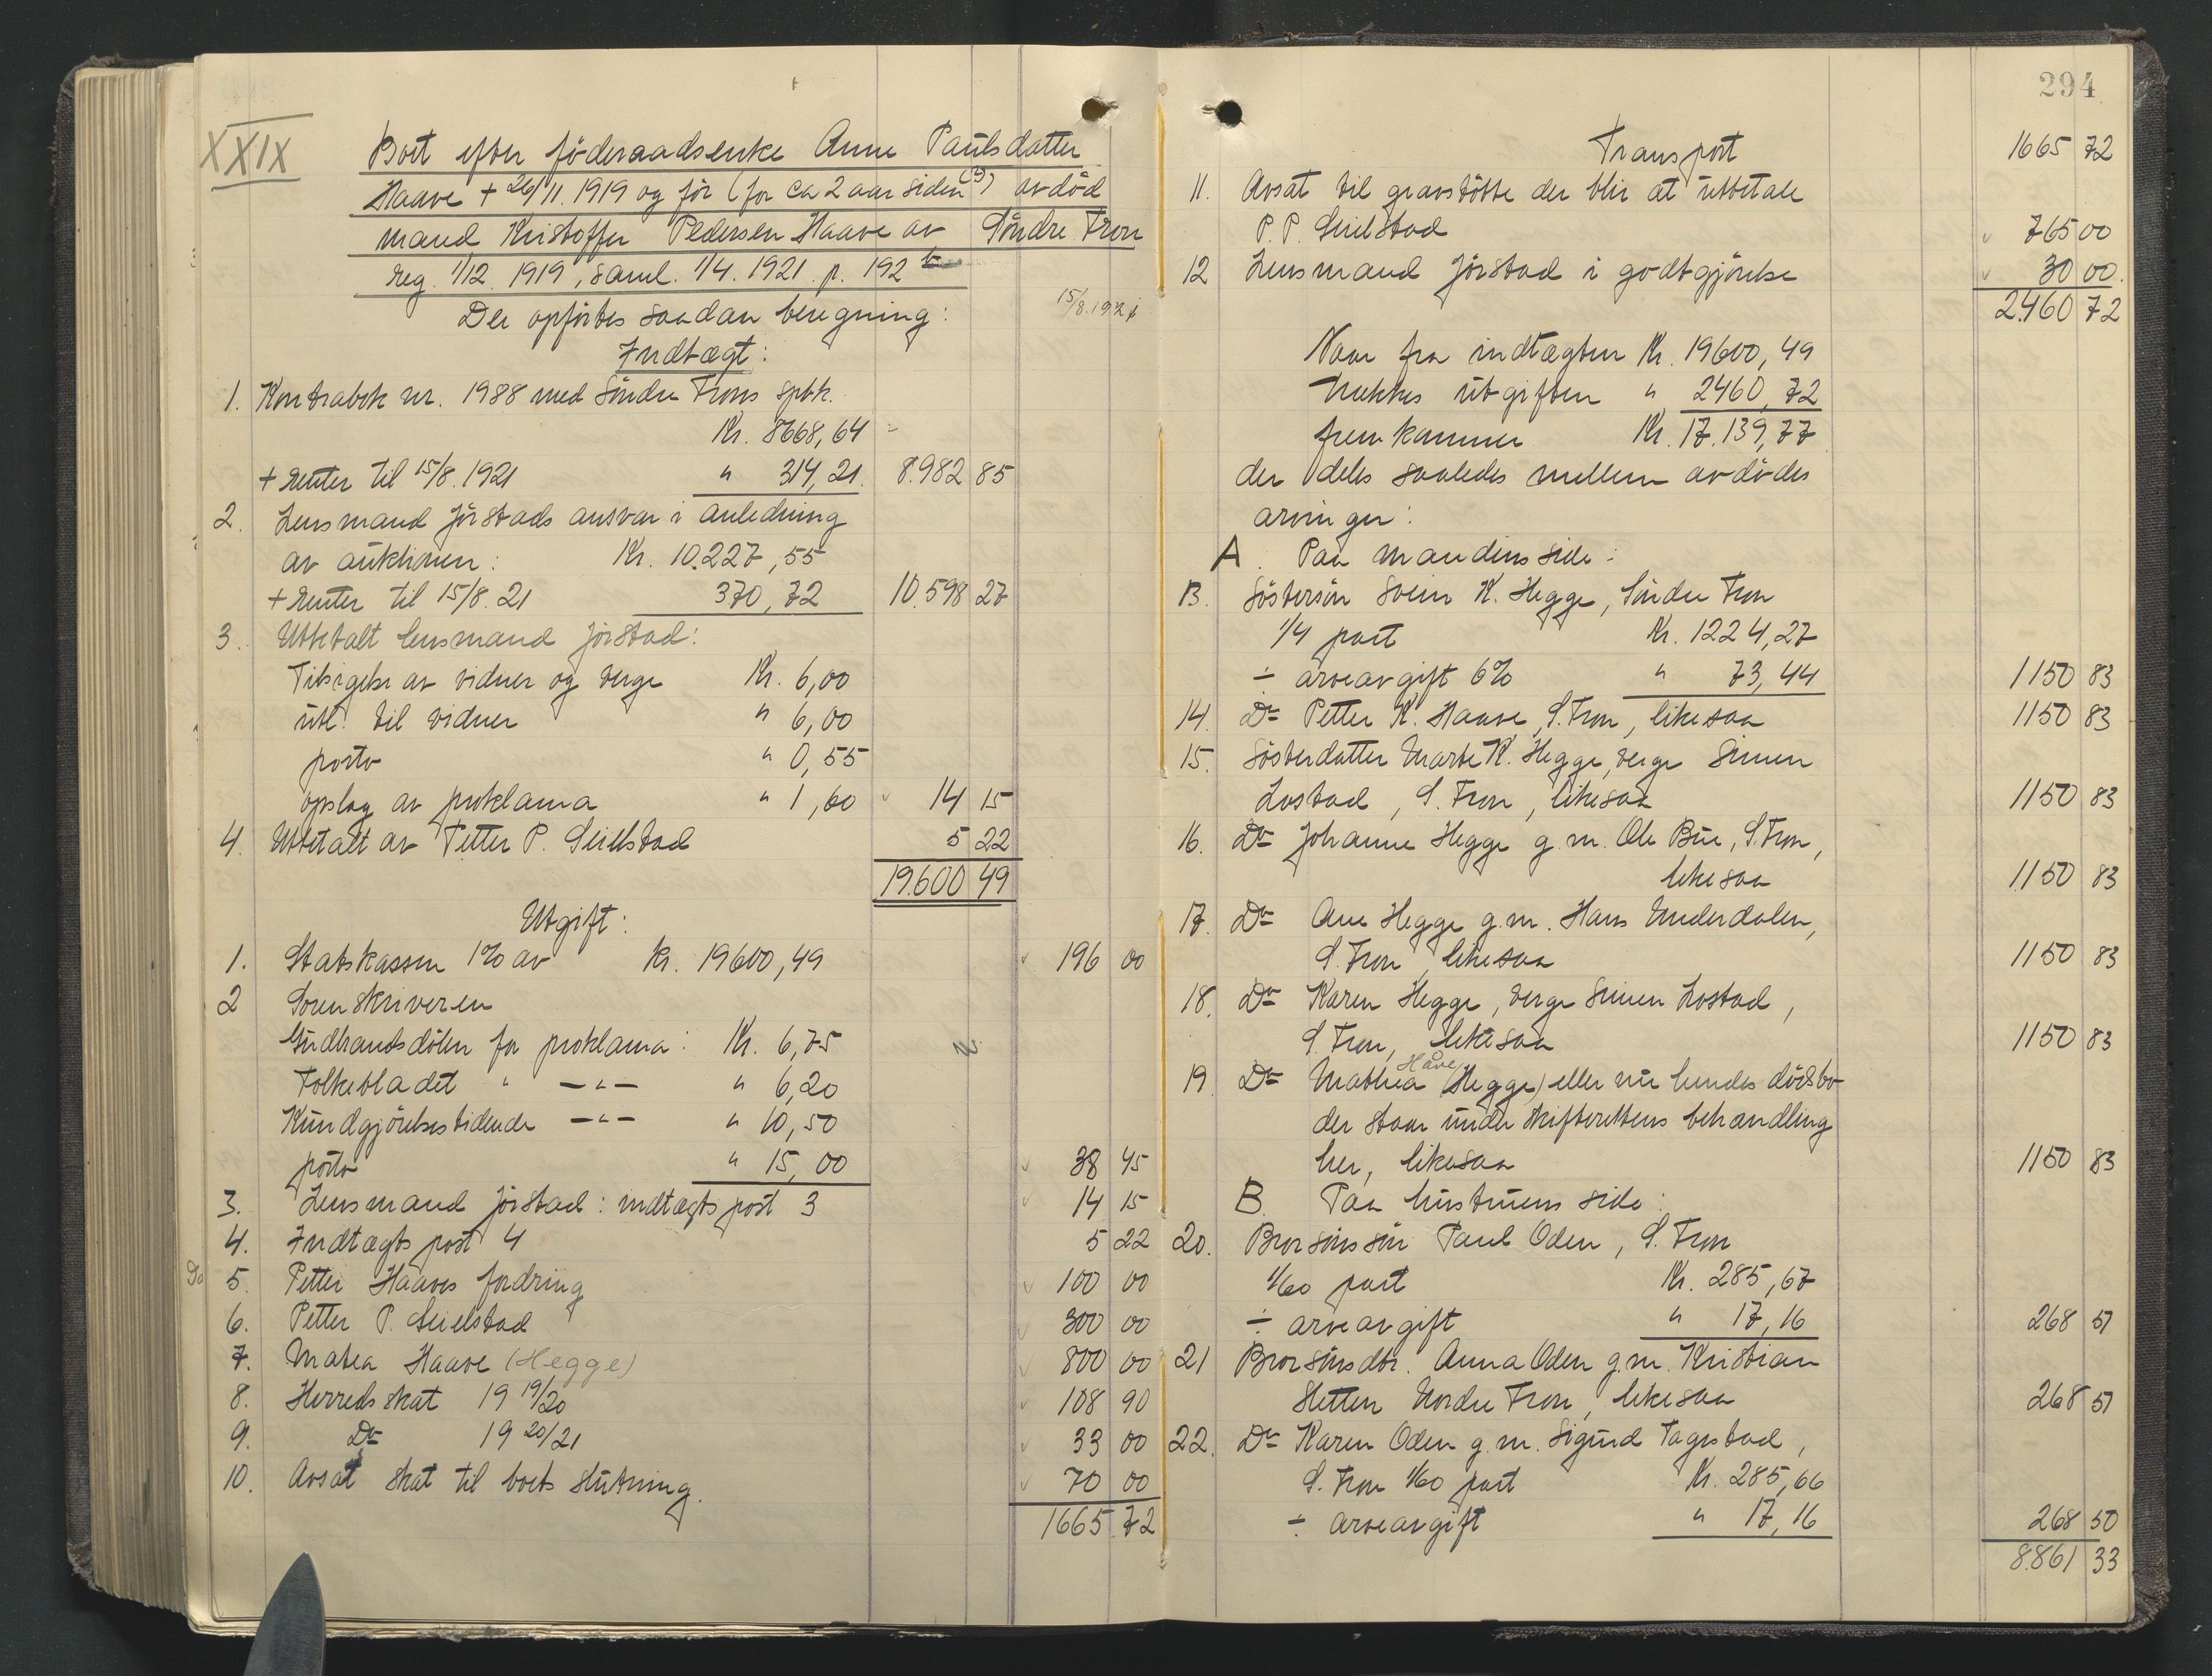 XXIX
Boet efter föderaadsenke Anne Paulsdatter
Haave + 26/11. 1919 og för (for ca 2 aar siden (?)) avdöd
mand Kristoffer Pedersen Haave av Söndre Fron
reg. 1/12. 1919, saml. 1/4. 1921. p. 192 b
Der opförtes saadan beregning: 15/8.1921
Indtægt:
1. Kontrabok nr. 1988 med Söndre Frons spbk.
Kr. 8668,64
+ renter til 15/8. 1921 " 314,21. 8.982 85
2. Lensmand Jörstads ansvar i anledning
av auktionen: Kr. 10.227,55
+ renter til 15/8. 21 370,72 10.598 27
3. Utbetalt lensmand Jörstad:
Tilsigelse av vidner og verge Kr. 6,00
utl. til vidner " 6,00
porto " 0,55
opslag av proklama " 1,60 14 15
4. Utbetalt av Petter P. Seielstad 5 22
19.600 49
Utgift:
1. Statskassen 1% av Kr. 19600,49 196 00
2 Sorenskriveren
Gudbrandsdölen for proklama: Kr. 6,75
Folkebladet " —"— " 6,20
Kundgjörelsestidende —"— " 10,50
porto " 15,00 38 45
3. Lensmand Jörstad: indtægtspost 3 14 15
4. Indtægtspost 4 5 22
5. Petter Haaves fordring 100 00
6. Petter P. Seielstad 300 00
7. Matea Haave (Hegge) 800 00
8. Herredsskat 19 19/20 108 90
9. Do 19 20/21 33 00
10. Avsat skat til boets slutning. 70 00
1665 72
294
Transport 1665 72
11. Avsat til gravstötte der blir at utbetale
P. P. Seielstad 765 00
12 Lensmand Jörstad i godtgjörelse 30 00.
2.460 72
Naar fra indtægten Kr. 19600,49
trækkes utgiften " 2460,72
fremkommer Kr. 17.139,77
der deles saaledes mellem avdödes
arvinger:
A. Paa mandens side:
13. Söstersön Svein K. Hegge, Söndre Fron
1/14 part Kr. 1224,27
÷ arveavgift 6% " 73,44 1150 83
14. Do Petter K. Haave, S. Fron, likesaa 1150 83
15. Sösterdatter Marte K. Hegge, verge Simen
Lostad, S. Fron, likesaa 1150 83
16. Do Johanne Hegge g. m. Ole Bue, S. Fron,
likesaa 1150 83
17. Do Ane Hegge g. m. Hans Underdalen,
S. Fron, likesaa 1150 83
18. Do Karen Hegge, verge Simen Lostad,
S. Fron, likesaa 1150 83
Håve
19 Do Mathea (Hegge) eller nu hendes dödsbo
der staar under skifterettens behandling
her, likesaa 1150 83
B. Paa hustruens side:
20. Brorsöns sön Paul Oden, S. Fron
1/60 part Kr. 285,67
÷ arveavgift " 17,16 268 51
21 Brorsönsdtr. Anna Oden g. m. Kristian
Sletten Nordre Fron, likesaa 268 51
22. Do Karen Oden g. m. Sigurd Tagestad,
S. Fron 1/60 part Kr. 285,66
÷ arveavgift " 17,16 268 50
8.861 33